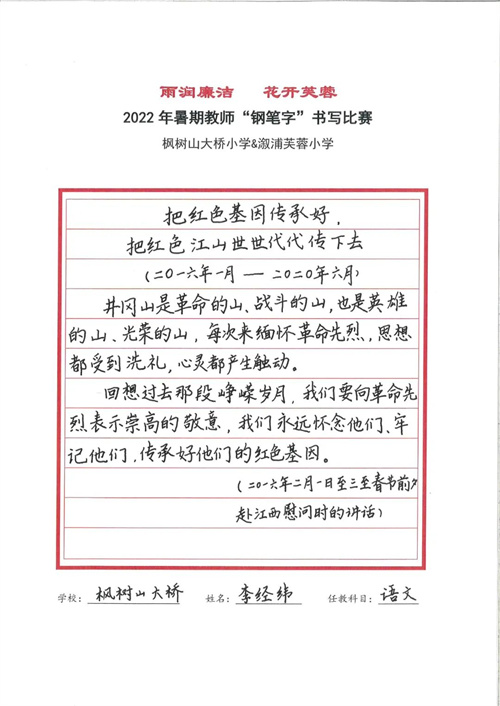 雨润廉洁 花开芙蓉
2022年暑期教师“钢笔字”书写比赛
枫树山大桥小学&溆浦芙蓉小学
把红色基因传承好,
把红色江山世世代代传下去
(二〇一六年一月 — 二〇二〇年六月)
井冈山是革命的山、战斗的山,也是英雄
的山、光荣的山,每次来缅怀革命先烈,思想
都受到洗礼,心灵都产生触动。
回想过去那段峥嵘岁月,我们要向革命先
烈表示崇高的敬意,我们永远怀念他们、牢
记他们,传承好他们的红色基因。
(二〇一六年二月一日至三至春节前夕
赴江西慰问时的讲话)
学校: 枫树山大桥 姓名: 李经纬 任教科目: 语文